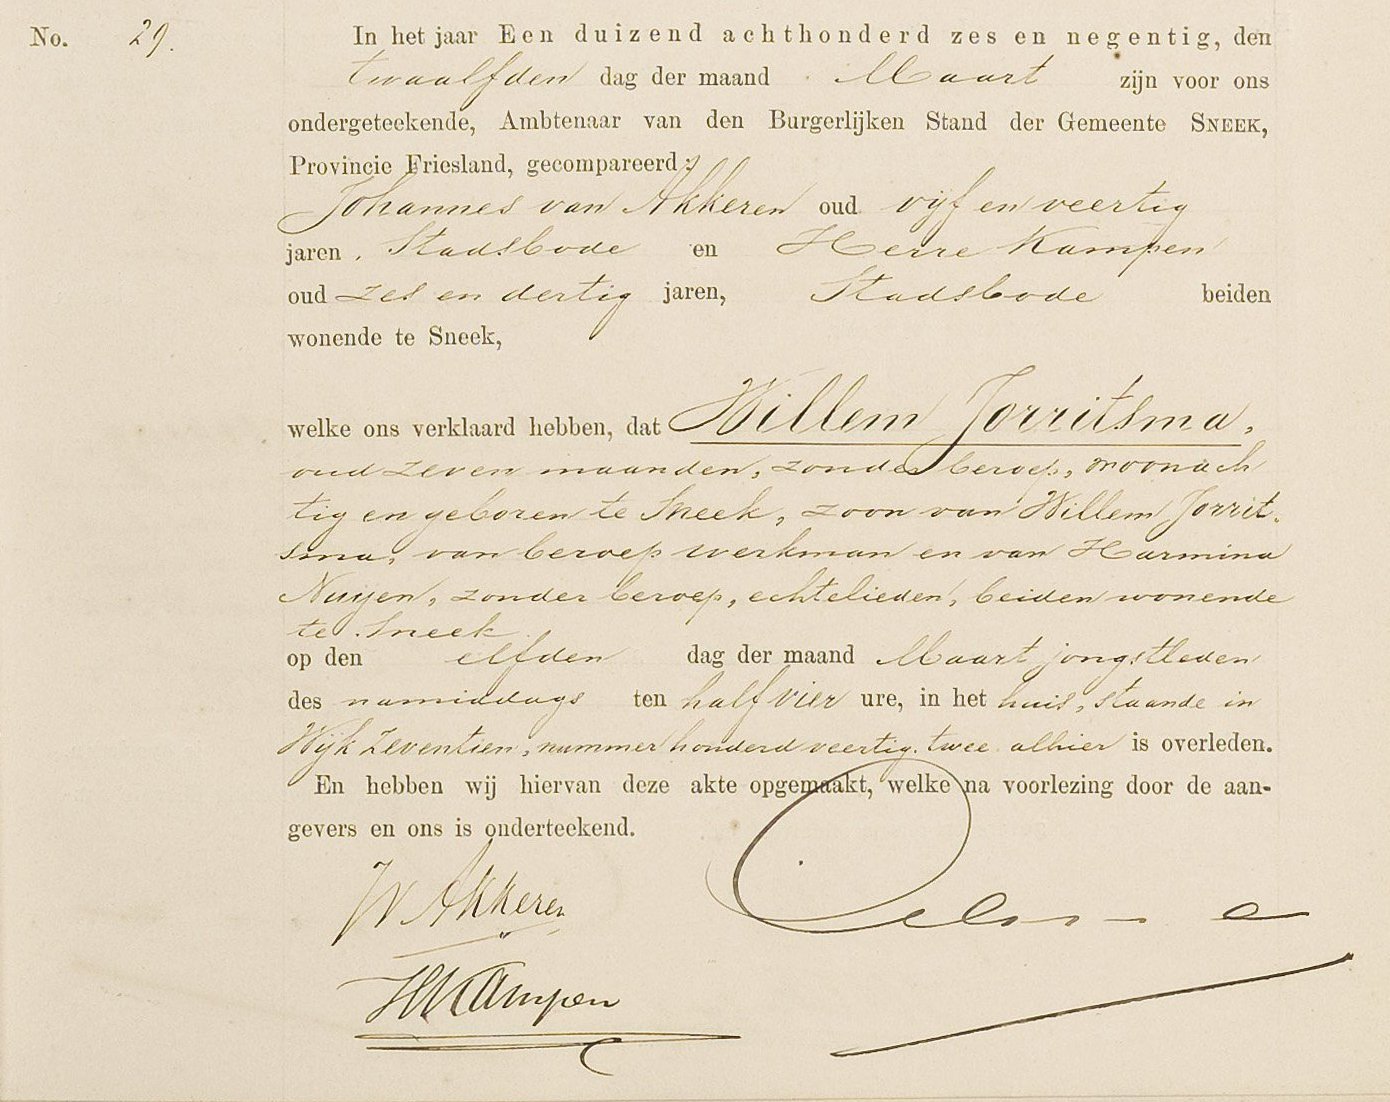 No. 29.
In het jaar Een duizend achthonderd zes en negentig, den
twaalfden dag der maand Maart zijn voor ons
ondergeteekende, Ambtenaar van den Burgerlijken Stand der Gemeente SNEEK,
Provincie Friesland, gecompareerd:
Johannes van Akkeren oud vijf en veertig
jaren, Stadsbode en Herre Kampen
oud zes en dertig jaren, Stadsbode beiden
wonende te Sneek,
welke ons verklaard hebben, dat Willem Jorritsma,
oud zeven maanden, zonder beroep, woonach
tig en geboren te Sneek, zoon van Willem Jorrit-
sma, van beroep werkman en van Harmina
Nuijen, zonder beroep, echtelieden, beiden wonende
te Sneek
op den elfden dag der maand Maart jongstleden
des namiddags ten half vier ure, in het huis, staande in
Wijk zeventien, nummer honderd veertig twee alhier is overleden.
En hebben wij hiervan deze akte opgemaakt, welke na voorlezing door de aan-
gevers en ons is onderteekend.
JV Akkeren
HKampen